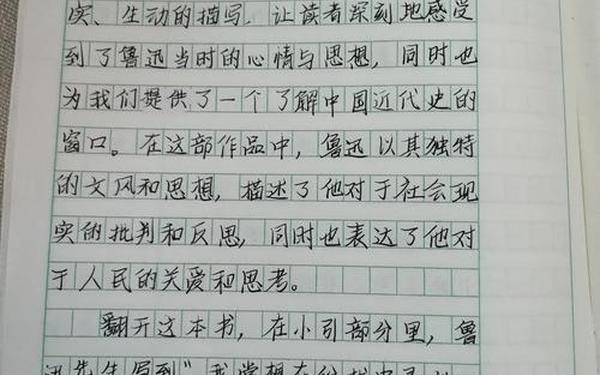 实、生动的描写，让读者深刻地感受
到了鲁迅当时的心情与思想，同时也
为我们提供了一个了解中国近代史的
窗口。在这部作品中，鲁迅以其独特
的文风和思想，描述了他对于社会现
实的批判和反思，同时也表达了他对
于人民的关爱和思考。
翻开这本书，在小引部分里，鲁
迅先生写到"我常想在纷扰中寻